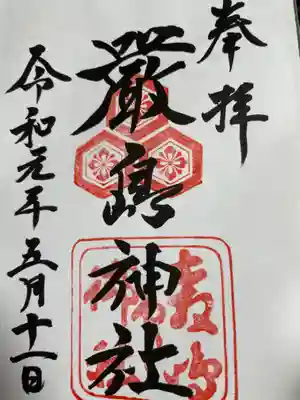 奉拝
嚴島神社
令和元年五月十一日